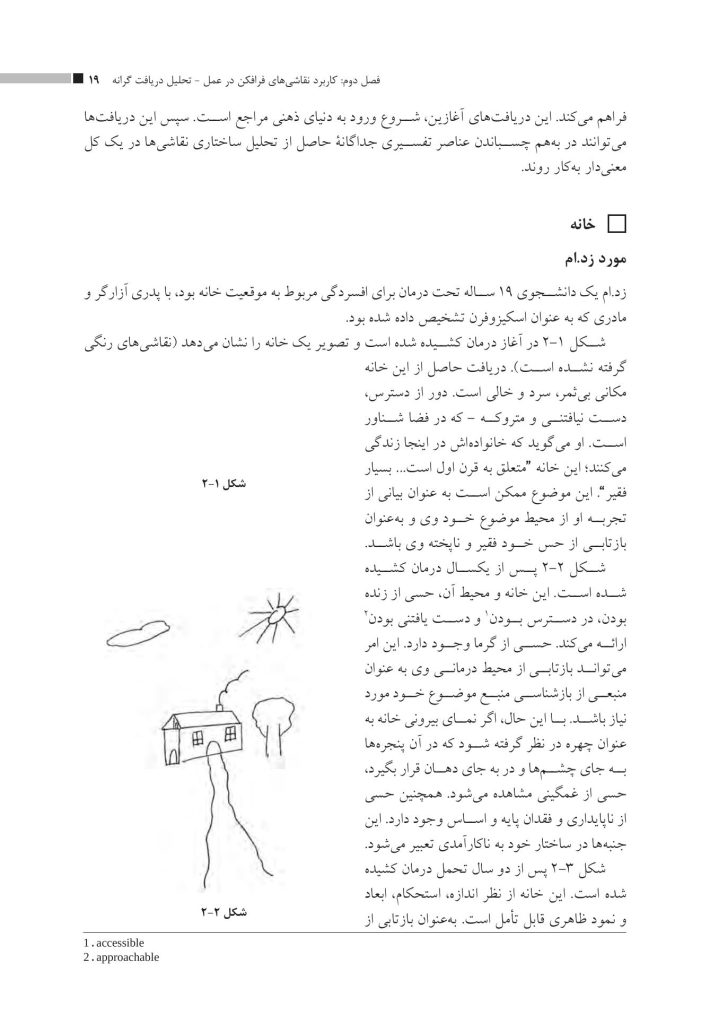 فصل دوم: کاربرد نقاشی‌های فرافکن در عمل – تحلیل دریافت گرانه ۱۹
فراهم می‌کند. این دریافت‌های آغازین، شـــروع ورود به دنیای ذهنی مراجع اســـت. سپس این دریافت‌ها
می‌توانند در به‌هم چســـباندن عناصر تفســـیری جداگانهٔ حاصل از تحلیل ساختاری نقاشی‌ها در یک کل
معنی‌دار به‌کار روند.
خانه
مورد زد.ام
زد.ام یک دانشـــجوی ۱۹ ســـاله تحت درمان برای افسردگی مربوط به موقعیت خانه بود، با پدری آزارگر و
مادری که به عنوان اسکیزوفرن تشخیص داده شده بود.
شـــکل ۱–۲ در آغاز درمان کشـــیده شده است و تصویر یک خانه را نشان می‌دهد (نقاشی‌های رنگی
گرفته نشـــده اســـت). دریافت حاصل از این خانه
مکانی بی‌ثمر، سرد و خالی است. دور از دسترس،
دســـت نیافتنـــی و متروکـــه – که در فضا شـــناور
اســـت. او می‌گوید که خانواده‌اش در اینجا زندگی
می‌کنند؛ این خانه "متعلق به قرن اول است... بسیار
فقیر". این موضوع ممکن اســـت به عنوان بیانی از
تجربـــه او از محیط موضوع خـــود وی و به‌عنوان
بازتابـــی از حس خـــود فقیر و ناپخته وی باشـــد.
شـــکل ۲–۲ پـــس از یکســـال درمان کشـــیده
شـــده اســـت. این خانه و محیط آن، حسی از زنده
بودن، در دســـترس بـــودن۱ و دست یافتنی بودن۲
ارائـــه می‌کند. حســـی از گرما وجـــود دارد. این امر
می‌توانـــد بازتابـــی از محیط درمانـــی وی به عنوان
منبعـــی از بازشناســـی منبـــع موضـــوع خـــود مورد
نیاز باشـــد. بـــا این حال، اگر نمـــای بیرونی خانه به
عنوان چهره در نظر گرفته شـــود که در آن پنجره‌ها
بـــه جای چشـــم‌ها و در به جای دهـــان قرار بگیرد،
حسی از غمگینی مشاهده می‌شود. همچنین حسی
از ناپایداری و فقدان پایه و اســـاس وجود دارد. این
جنبه‌ها در ساختار خود به ناکارآمدی تعبیر می‌شود.
شکل ۳–۲ پس از دو سال تحمل درمان کشیده
شده است. این خانه از نظر اندازه، استحکام، ابعاد
و نمود ظاهری قابل تأمل است. به‌عنوان بازتابی از
شکل ۱–۲
شکل ۲–۲
1 . accessible
2 . approachable